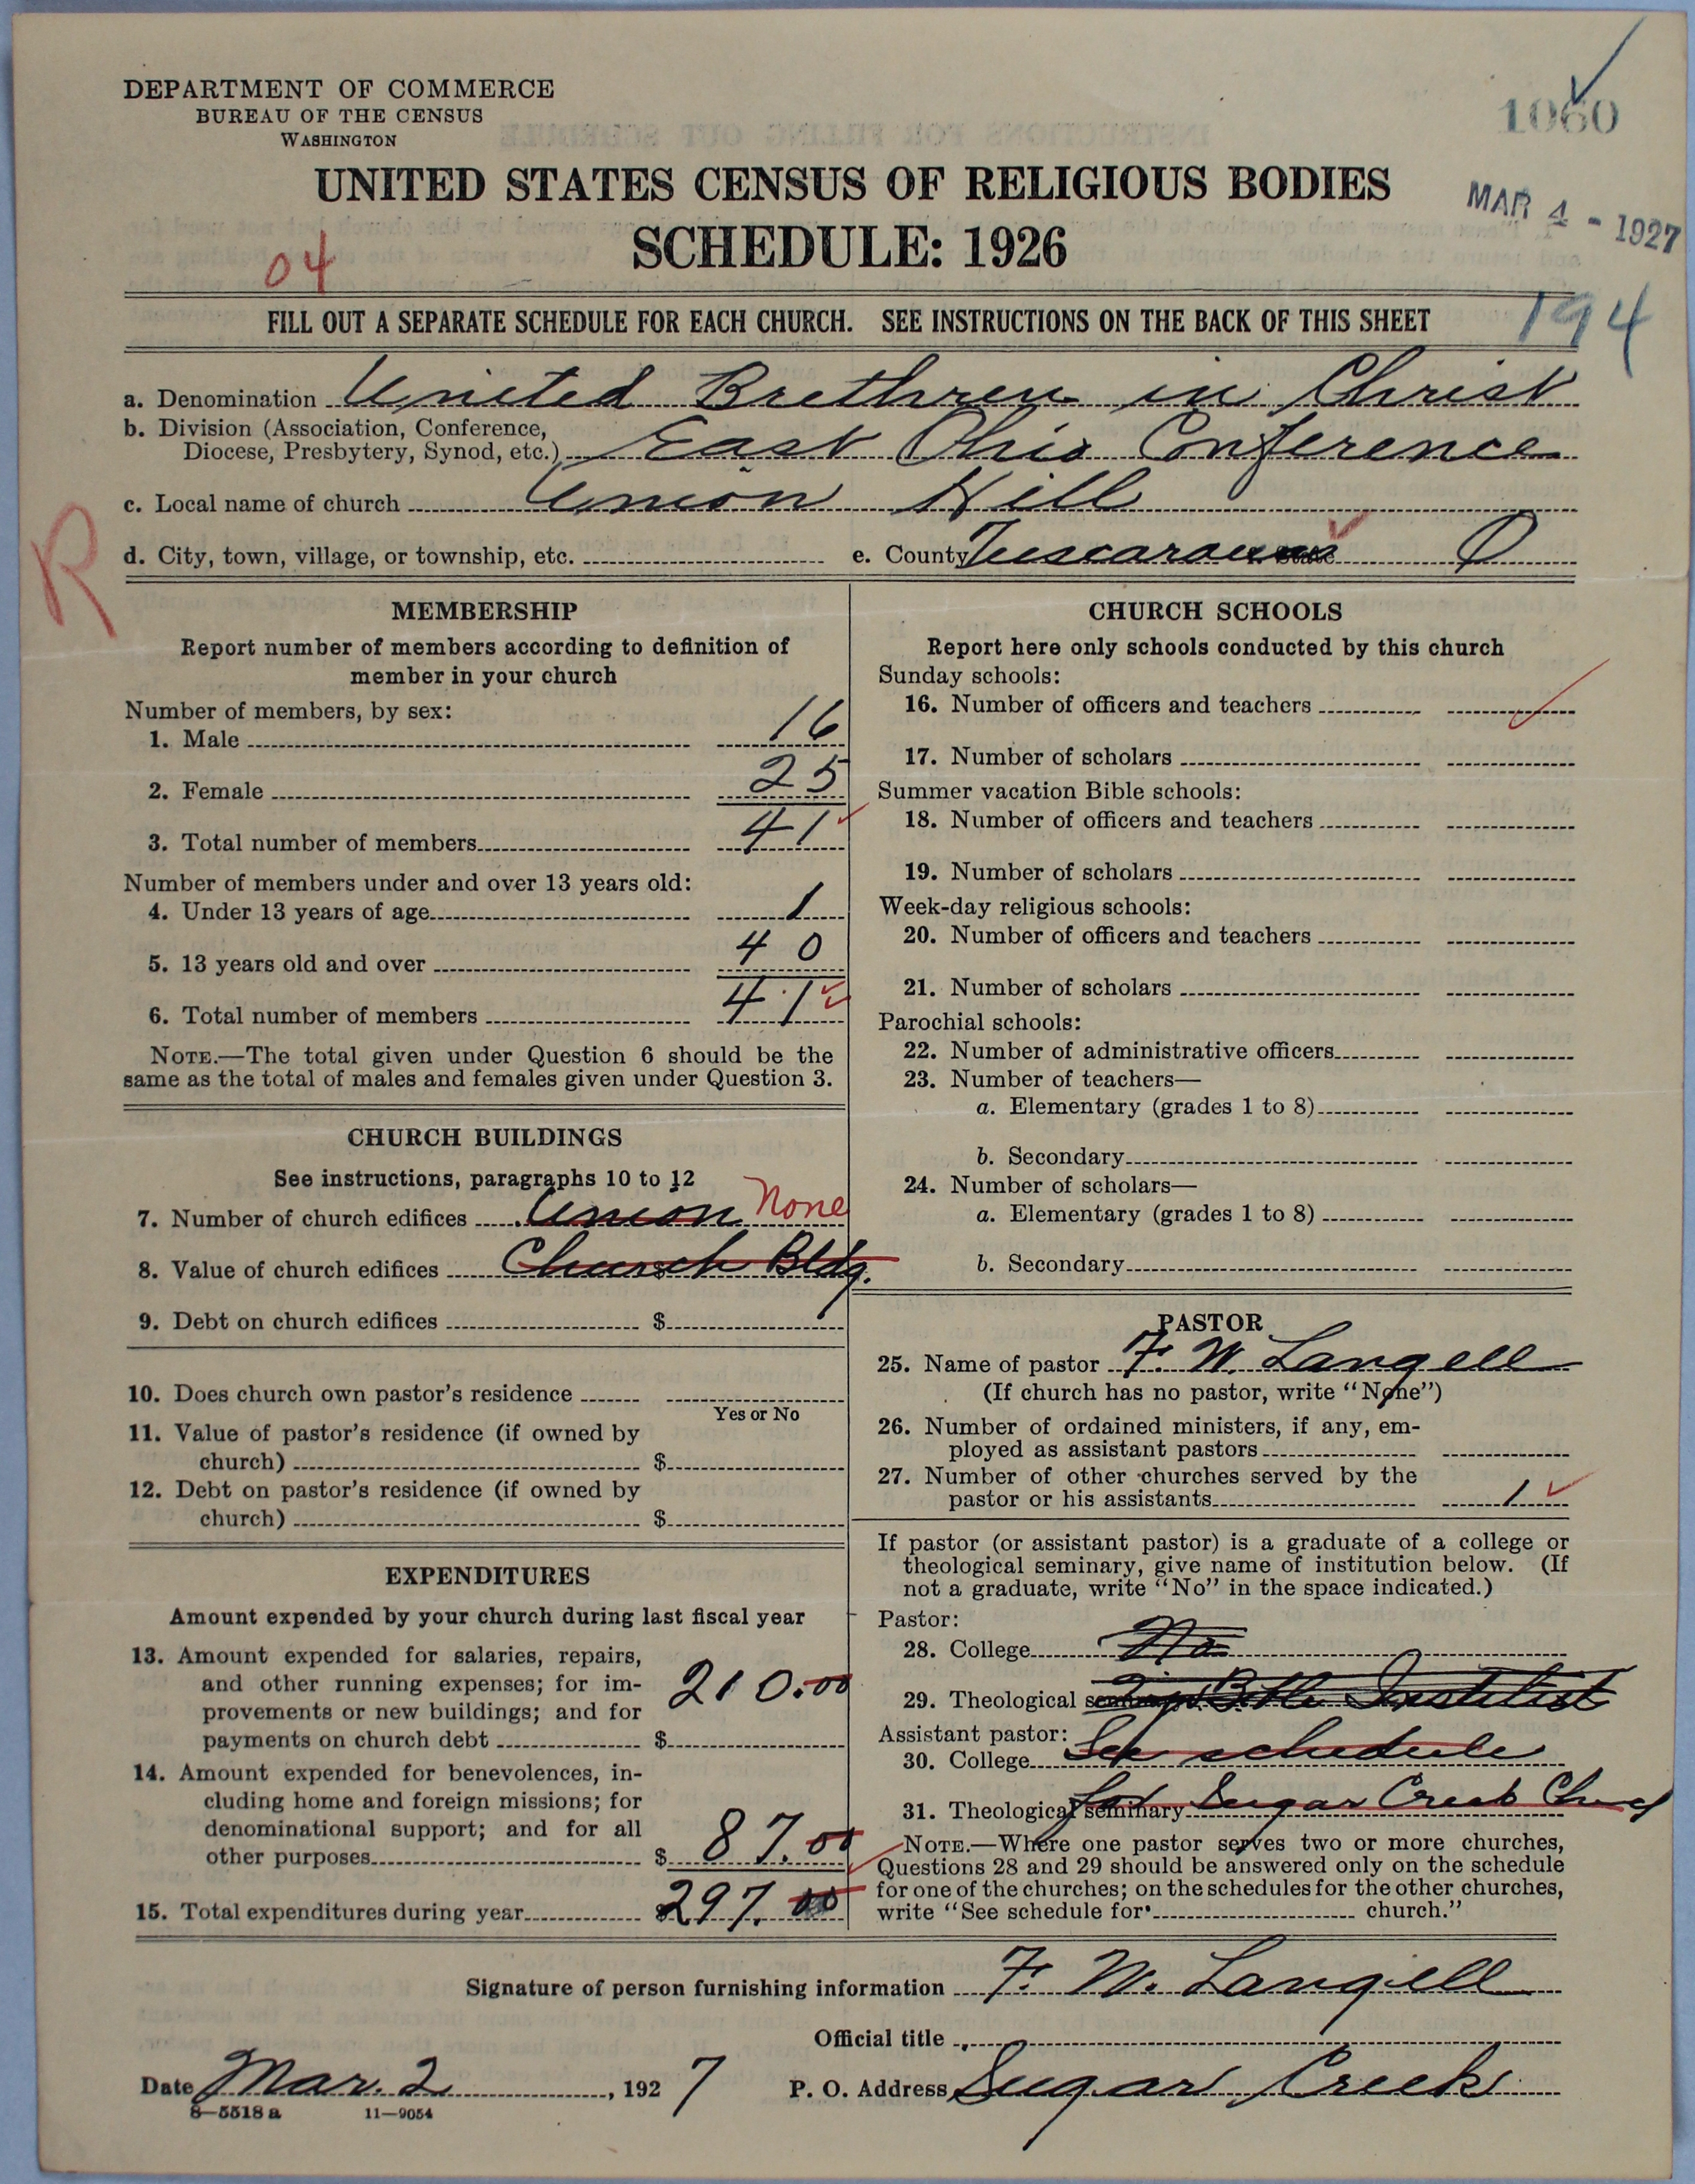 DEPARTMENT OF COMMERCE
BUREAU OF THE CENSUS
WASHINGTON
1060
UNITED STATES CENSUS OF RELIGIOUS BODIES
MAR 4 - 1927
SCHEDULE: 1926
04
FILL OUT A SEPARATE SCHEDULE FOR EACH CHURCH. SEE INSTRUCTIONS ON THE BACK OF THIS SHEET
194
a. Denomination United Brethren in Christ
b. Division (Association, Conference,
Diocese, Presbytery, Synod, etc.) East Ohio Conference
c. Local name of church Union Hill
R
d. City, town, village, or township, etc. e. County Tuscarawas State O
MEMBERSHIP
Report number of members according to definition of
member in your church
Number of members, by sex:
1. Male 16
2. Female 25
3. Total number of members 41
Number of members under and over 13 years old:
4. Under 13 years of age 1
5. 13 years old and over 40
6. Total number of members 41
NOTE.—The total given under Question 6 should be the
same as the total of males and females given under Question 3.
CHURCH BUILDINGS
See instructions, paragraphs 10 to 12
7. Number of church edifices Union None
8. Value of church edifices $ Church Bldg.
9. Debt on church edifices $
10. Does church own pastor's residence
Yes or No
11. Value of pastor's residence (if owned by
church) $
12. Debt on pastor's residence (if owned by
church) $
EXPENDITURES
Amount expended by your church during last fiscal year
13. Amount expended for salaries, repairs,
and other running expenses; for im-
provements or new buildings; and for
payments on church debt $ 210.00
14. Amount expended for benevolences, in-
cluding home and foreign missions; for
denominational support; and for all
other purposes $ 87.00
15. Total expenditures during year $ 297.00
CHURCH SCHOOLS
Report here only schools conducted by this church
Sunday schools:
16. Number of officers and teachers
17. Number of scholars
Summer vacation Bible schools:
18. Number of officers and teachers
19. Number of scholars
Week-day religious schools:
20. Number of officers and teachers
21. Number of scholars
Parochial schools:
22. Number of administrative officers
23. Number of teachers—
a. Elementary (grades 1 to 8)
b. Secondary
24. Number of scholars—
a. Elementary (grades 1 to 8)
b. Secondary
PASTOR
25. Name of pastor F. W. Langell
(If church has no pastor, write "None")
26. Number of ordained ministers, if any, em-
ployed as assistant pastors
27. Number of other churches served by the
pastor or his assistants 1
If pastor (or assistant pastor) is a graduate of a college or
theological seminary, give name of institution below. (If
not a graduate, write "No" in the space indicated.)
Pastor:
28. College No
29. Theological seminary
Assistant pastor:
30. College See schedule
31. Theological seminary for Sugar Creek Church
NOTE.—Where one pastor serves two or more churches,
Questions 28 and 29 should be answered only on the schedule
for one of the churches; on the schedules for the other churches,
write "See schedule for church."
Signature of person furnishing information F. W. Langell
Official title
Date Mar. 2, 1927 P. O. Address Sugar Creek
8—5518 a 11—9054